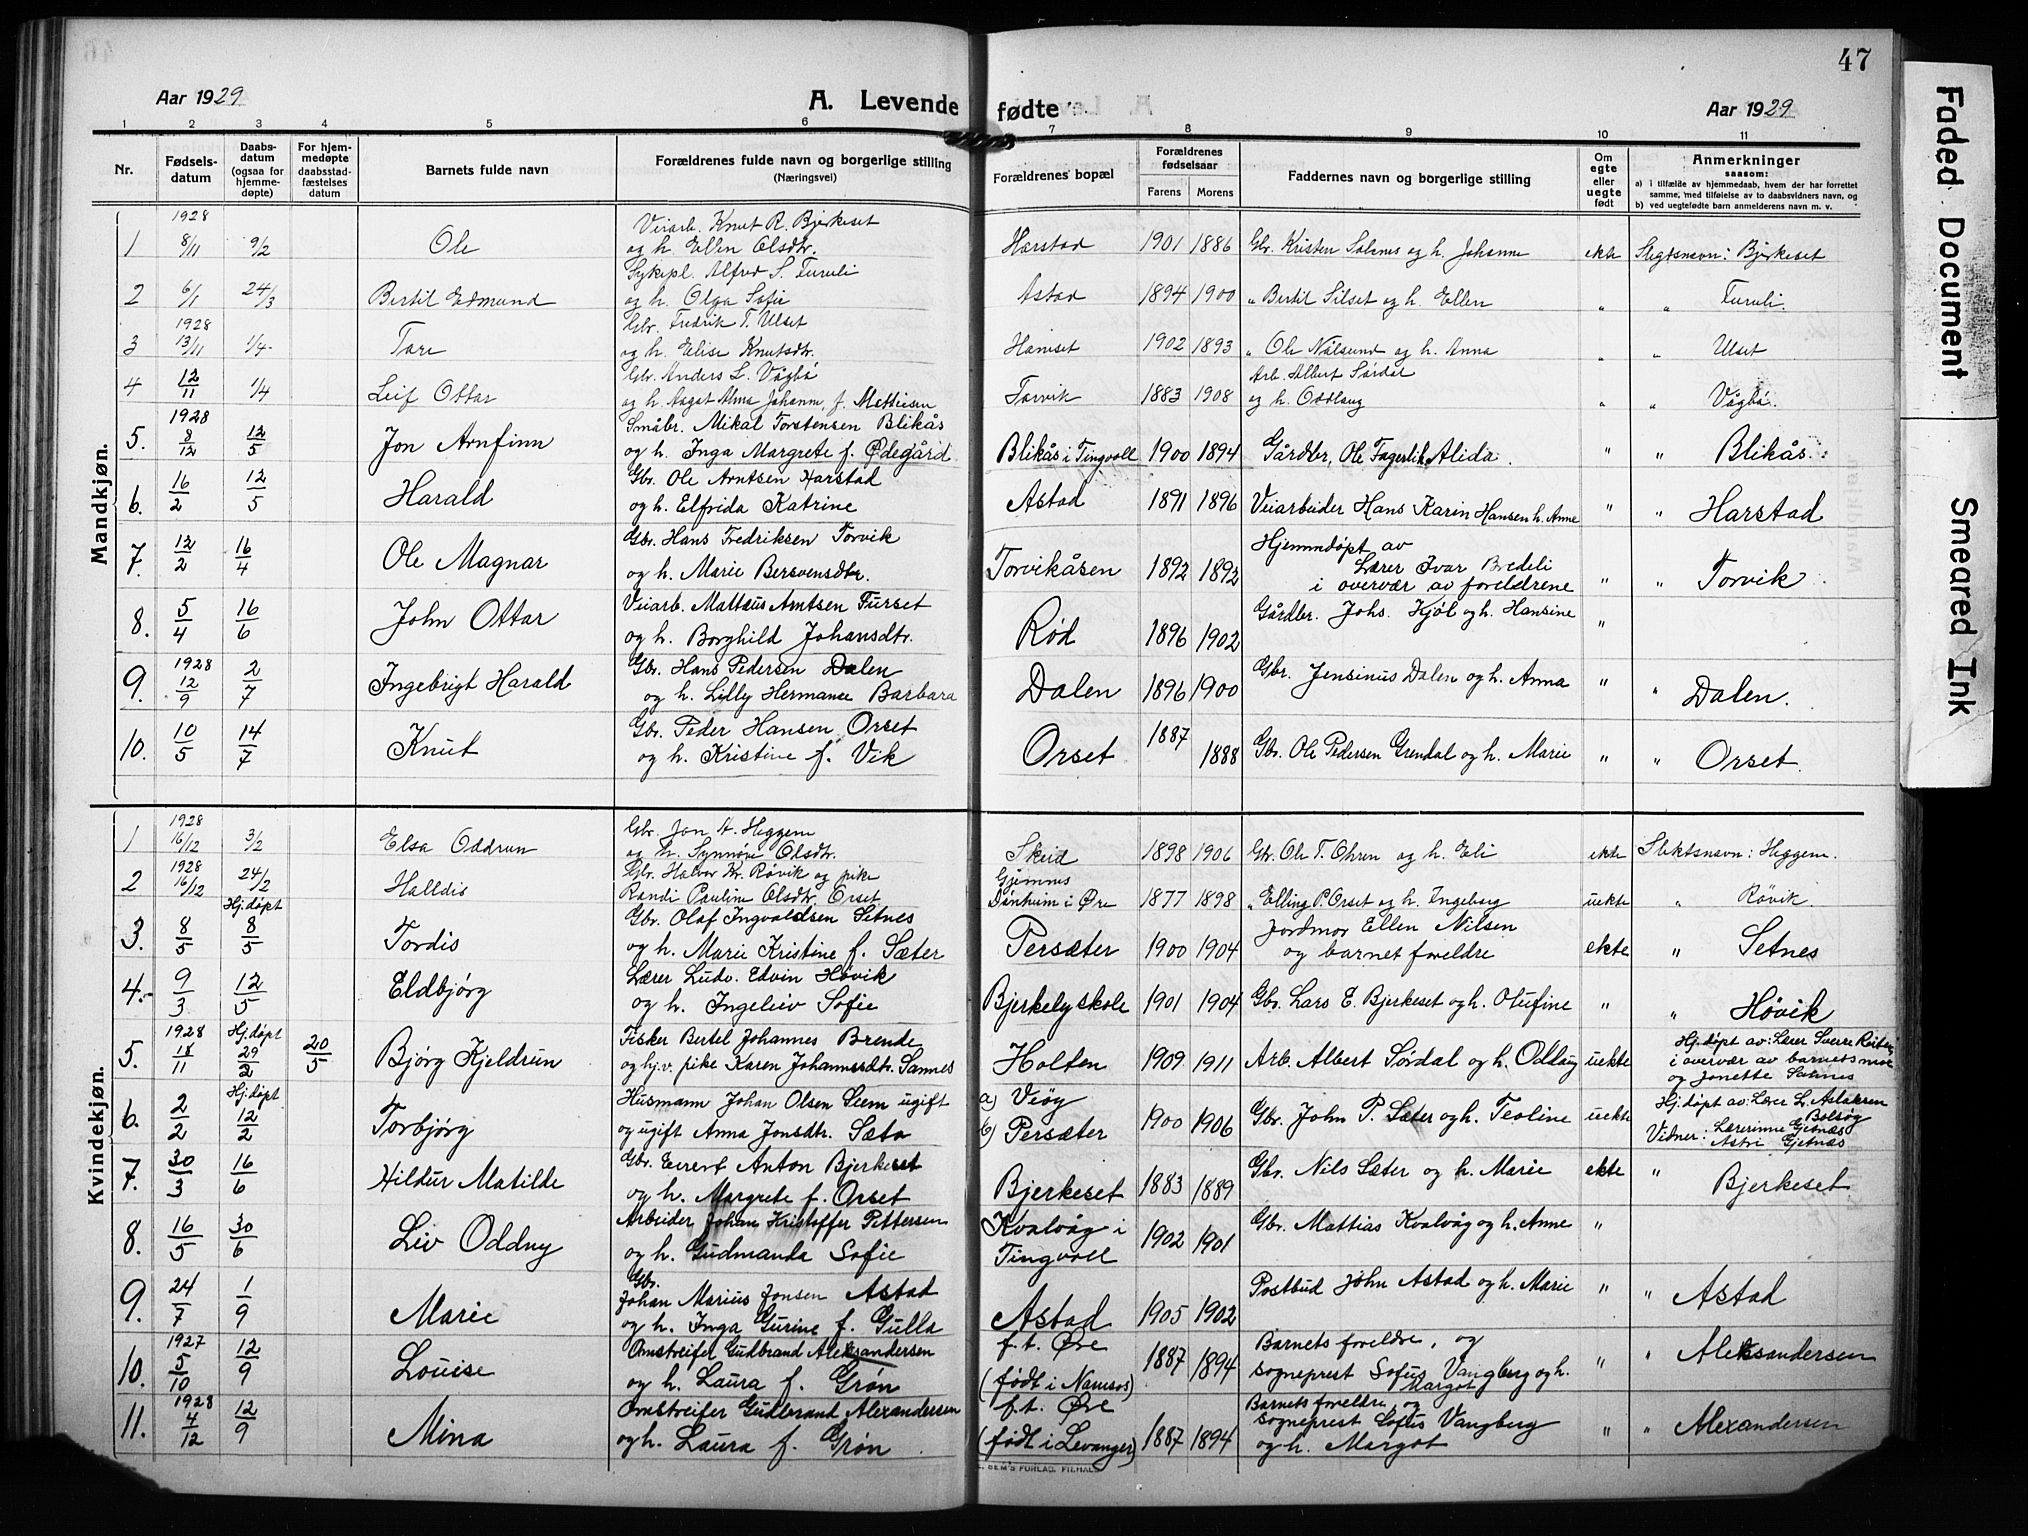 47
Aar 1929
A. Levende fødte
Aar 1929
1 2 3 4 5 6 7 8 9 10 11
Nr.
Fødsels-
datum
Daabs-
datum
(ogsaa for
hjemme-
døpte)
For hjem-
medøpte
daabsstad-
fæstelses
datum
Barnets fulde navn
Forældrenes fulde navn og borgerlige stilling
(Næringsvei)
Forældrenes bopæl
Forældrenes
fødselsaar
Farens Morens
Faddernes navn og borgerlige stilling
Om
egte
eller
uegte
født
Anmerkninger
saasom:
a) i tilfælde av hjemmedaab, hvem der har forrettet
samme, med tilføielse av to daabsvidners navn, og
b) ved uegtefødte barn anmelderens navn m. v.
Mandkjøn.
1928 Veiarb. Knut R. Bjerkeset
1 8/11 9/2 Ole og h. Ellen Olsdtr. Harstad 1901 1886 Gbr. Kristen Salenes og h. Johanne ekte Slegtsnavn: Bjerkeset
Sykepl. Alfred S. Furuli
2 6/1 24/3 Bertil Edmund og h. Olga Sofie Astad 1894 1900 " Bertil Silset og h. Ellen " " Furuli.
1928 Gbr. Fredrik T. Ulset
3 13/11 1/4 Tore og h. Elise Knutsdtr. Hamset 1902 1893 " Ole Nålsund og h. Anna " " Ulset
Gbr. Anders L. Vågbø Arb. Albert Sørdal
4 12/11 1/4 Leif Ottar og h. Aagot Alma Johanne, f. Mathisen Torvik 1883 1908 og h. Oddlaug " " Vågbø.
1928 Småbr. Mikal Torstensen Blikås
5. 8/12 12/5 Jon Arnfinn og h. Inga Margrete f. Ødegård. Blikås i Tingvoll 1900 1894 Gårdbr. Ole Fagerli h. Alida. " " Blikås.
Gbr. Ole Arntsen Harstad
6. 16/2 12/5 Harald og h. Elfrida Katrine Astad 1891 1896 Veiarbeider Hans Karin Hansen h. Anne " " Harstad
Gbr. Hans Fredriksen Torvik Hjemmdøpt av
7. 12/2 16/4 Ole Magnar og h. Marie Bersvensdtr. Torvikåsen 1892 1892 Lærer Ivar Bredeli
i overvær av foreldrene " " Torvik
Veiarb. Mattæus Arntsen Furset
8. 5/4 16/6 John Ottar og h. Borghild Johansdtr. Rød 1896 1902 Gårdbr. Johs. Kjøl og h. Hansine "
1928 Gbr. Hans Pedersen Dalen
9. 12/9 2/7 Ingebrigt Harald og h. Lilly Hermanea Barbara Dalen 1896 1900 Gbr. Jensinus Dalen og h. Anna " " Dalen.
Gbr. Peder Hansen Orset
10. 10/5 14/7 Knut og h. Kristine f. Vik Orset 1887 1888 Gbr. Ole Pedersen Grendal og h. Marie " " Orset.
Kvindekjøn.
1928 Gbr. Jon A. Heggem
1 16/12 3/2 Elsa Oddrun og h. Synnøve Olsdtr. Skeid 1898 1906 Gbr. Ole T. Ohren og h. Eli ekte Slektsnavn: Heggem.
1928 Gbr. Halvor Kr. Røvik og pike Gjemnes
2 16/12 24/2 Halldis Randi Pauline Olsdtr. Orset i Øre 1877 1898 " Elling P. Orset og h. Ingeborg uekte " Røvik
Hj.døpt Gbr. Olaf Ingvaldsen Setnes Jordmor Ellen Nilsen
3. 8/5 8/5 Tordis og h. Marie Kristine f. Sæter Persæter 1900 1904 og barnet foreldre ekte " Setnes
Lærer Ludv. Edvin Høvik
4. 9/3 12/5 Eldbjørg og h. Ingeleiv Sofie Bjerkely skole 1901 1904 Gbr. Lars E. Bjerkeset og h. Olufine " " Høvik
1928 Hj.døpt Fisker Bertel Johannes Brende Hj.døpt av: Lærer Sverre
5. 18/11 29/2 20/5 Bjørg Kjeldrun og hj.v. pike Karen Johannesdtr. Sannes Holten 1909 1911 Arb. Albert Sørdal og h. Oddlaug uekte i overvær av barnets mor
og Jonette
Hj.døpt Husmann Johan Olsen Seem ugift a) Veøy Hj.døpt av: Lærer L. Aslaksen
Bolsøy
6. 2/2 12/2 Torbjørg og ugift Anna Jonsdtr. Sæter b) Persæter 1900 1906 Gbr. John P. Sæter og h. Teoline uekte Vidner: Lærerinne Gjetnæs
Astri Gjetnæs
Gbr. Eivert Anton Bjerkeset
7. 30/3 16/6 Hildur Matilde og h. Margrete f. Orset Bjerkeset 1883 1889 Gbr. Nils Sæter og h. Marie ekte " Bjerkeset
Arbeider Johan Kristoffer Pettersen Kvalvåg i
8. 16/5 30/6 Liv Oddny og h. Gudmunda Sofie Tingvoll 1902 1901 Gbr. Mattias Kvalvåg og h. Anne "
Gbr.
Johan Marius Jonsen Astad
9. 24/7 1/9 Marie og h. Inga Gurine f. Gulla Astad 1905 1902 Postbud John Astad og h. Marie " " Astad
1927 Omstreifer Gudbrand Aleksandersen f.t. Øre Barnets foreldre, og
10. 5/10 12/9 Louise og h. Laura f. Grøn (født i Namsos) 1887 1894 sogneprest Sofus Vangberg og h.
Margot " " Aleksandersen
1928 Omstreifer Gudbrand Alexandersen f.t. Øre Barnets foreldre, og
11. 4/12 12/9 Mina og h. Laura f. Grøn (født i Levanger) 1887 1894 sogneprest Sofus Vangberg
og h. Margot " " Alexandersen
SEM'S FORLAG. FILHALD
Faded Document
Smeared Ink